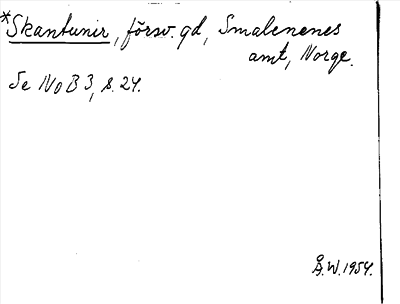 *Skantunir, försv. gd, Smalenenes
amt, Norge.
Se NoB 3, s. 24.
Å.W. 1954.